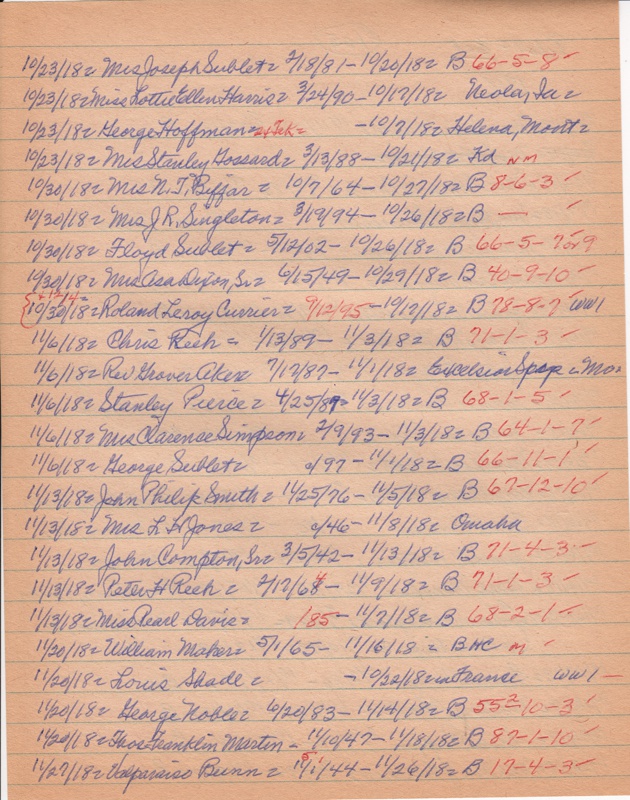 10/23/18= Mrs Joseph Sublet= 2/18/81 - 10/20/18= B 66-5-8 ✓
10/23/18= Miss Lottie Ellen Harris= 3/24/90 - 10/17/18= Neola, Ia=
10/23/18= George Hoffman= - 10/7/18= Helena, Mont=
10/23/18= Mrs Stanley Gossard= 3/13/88 - 10/21/18= Kd NM
10/30/18= Mrs N. T. Biffar= 10/7/64 - 10/27/18= B 8-6-3 ✓
10/30/18= Mrs J. R. Singleton= 3/19/94 - 10/26/18= B —
10/30/18= Floyd Sublet= 5/12/02 - 10/26/18= B 66-5-7 or 9
10/30/18= Mrs Asa Dixon, Sr= 6/15/49 - 10/29/18= B 40-9-10 ✓
10/30/18= Roland Leroy Currier= 9/12/95 - 10/17/18= B 78-8-7 ✓ WW1
11/6/18= Chris Reeh= 1/13/89 - 11/3/18= B 71-1-3 ✓
11/6/18= Rev Grover Aken 7/17/87 - 11/1/18= Excelsior Spgs = Mo=
11/6/18= Stanley Pierce= 4/25/89 - 11/3/18= B 68-1-5 ✓
11/6/18= Mrs Clarense Simpson= 2/9/93 - 11/3/18= B 64-1-7 ✓
11/6/18= George Sublet= /97 - 11/1/18= B 66-11-1 ✓
11/13/18= John Philip Smith= 11/25/76 - 11/5/18= B 67-12-10 ✓
11/13/18= Mrs L. H. Jones= /46 - 11/8/18= Omaha
11/13/18= John Compton, Sr= 3/5/42 - 11/13/18= B 71-4-3 ✓
11/13/18= Peter H Reeh= 2/17/64 - 11/9/18= B 71-1-3 ✓
11/13/18= Miss Pearl Davis= /85 - 11/7/18= B 68-2-1 ✓
11/20/18= William Maher= 5/1/65 - 11/16/18= BHC M ✓
11/20/18= Louis Shade= - 10/22/18= in France WW1 —
11/20/18= George Noble= 6/20/83 - 11/14/18= B 55²-10-3 ✓
11/20/18= Thos Franklin Martin - 11/10/47 - 11/18/18= B 87-1-10 ✓
11/27/18= Valparaiso Bunn= /1/44 - 11/26/18= B 17-4-3 ✓